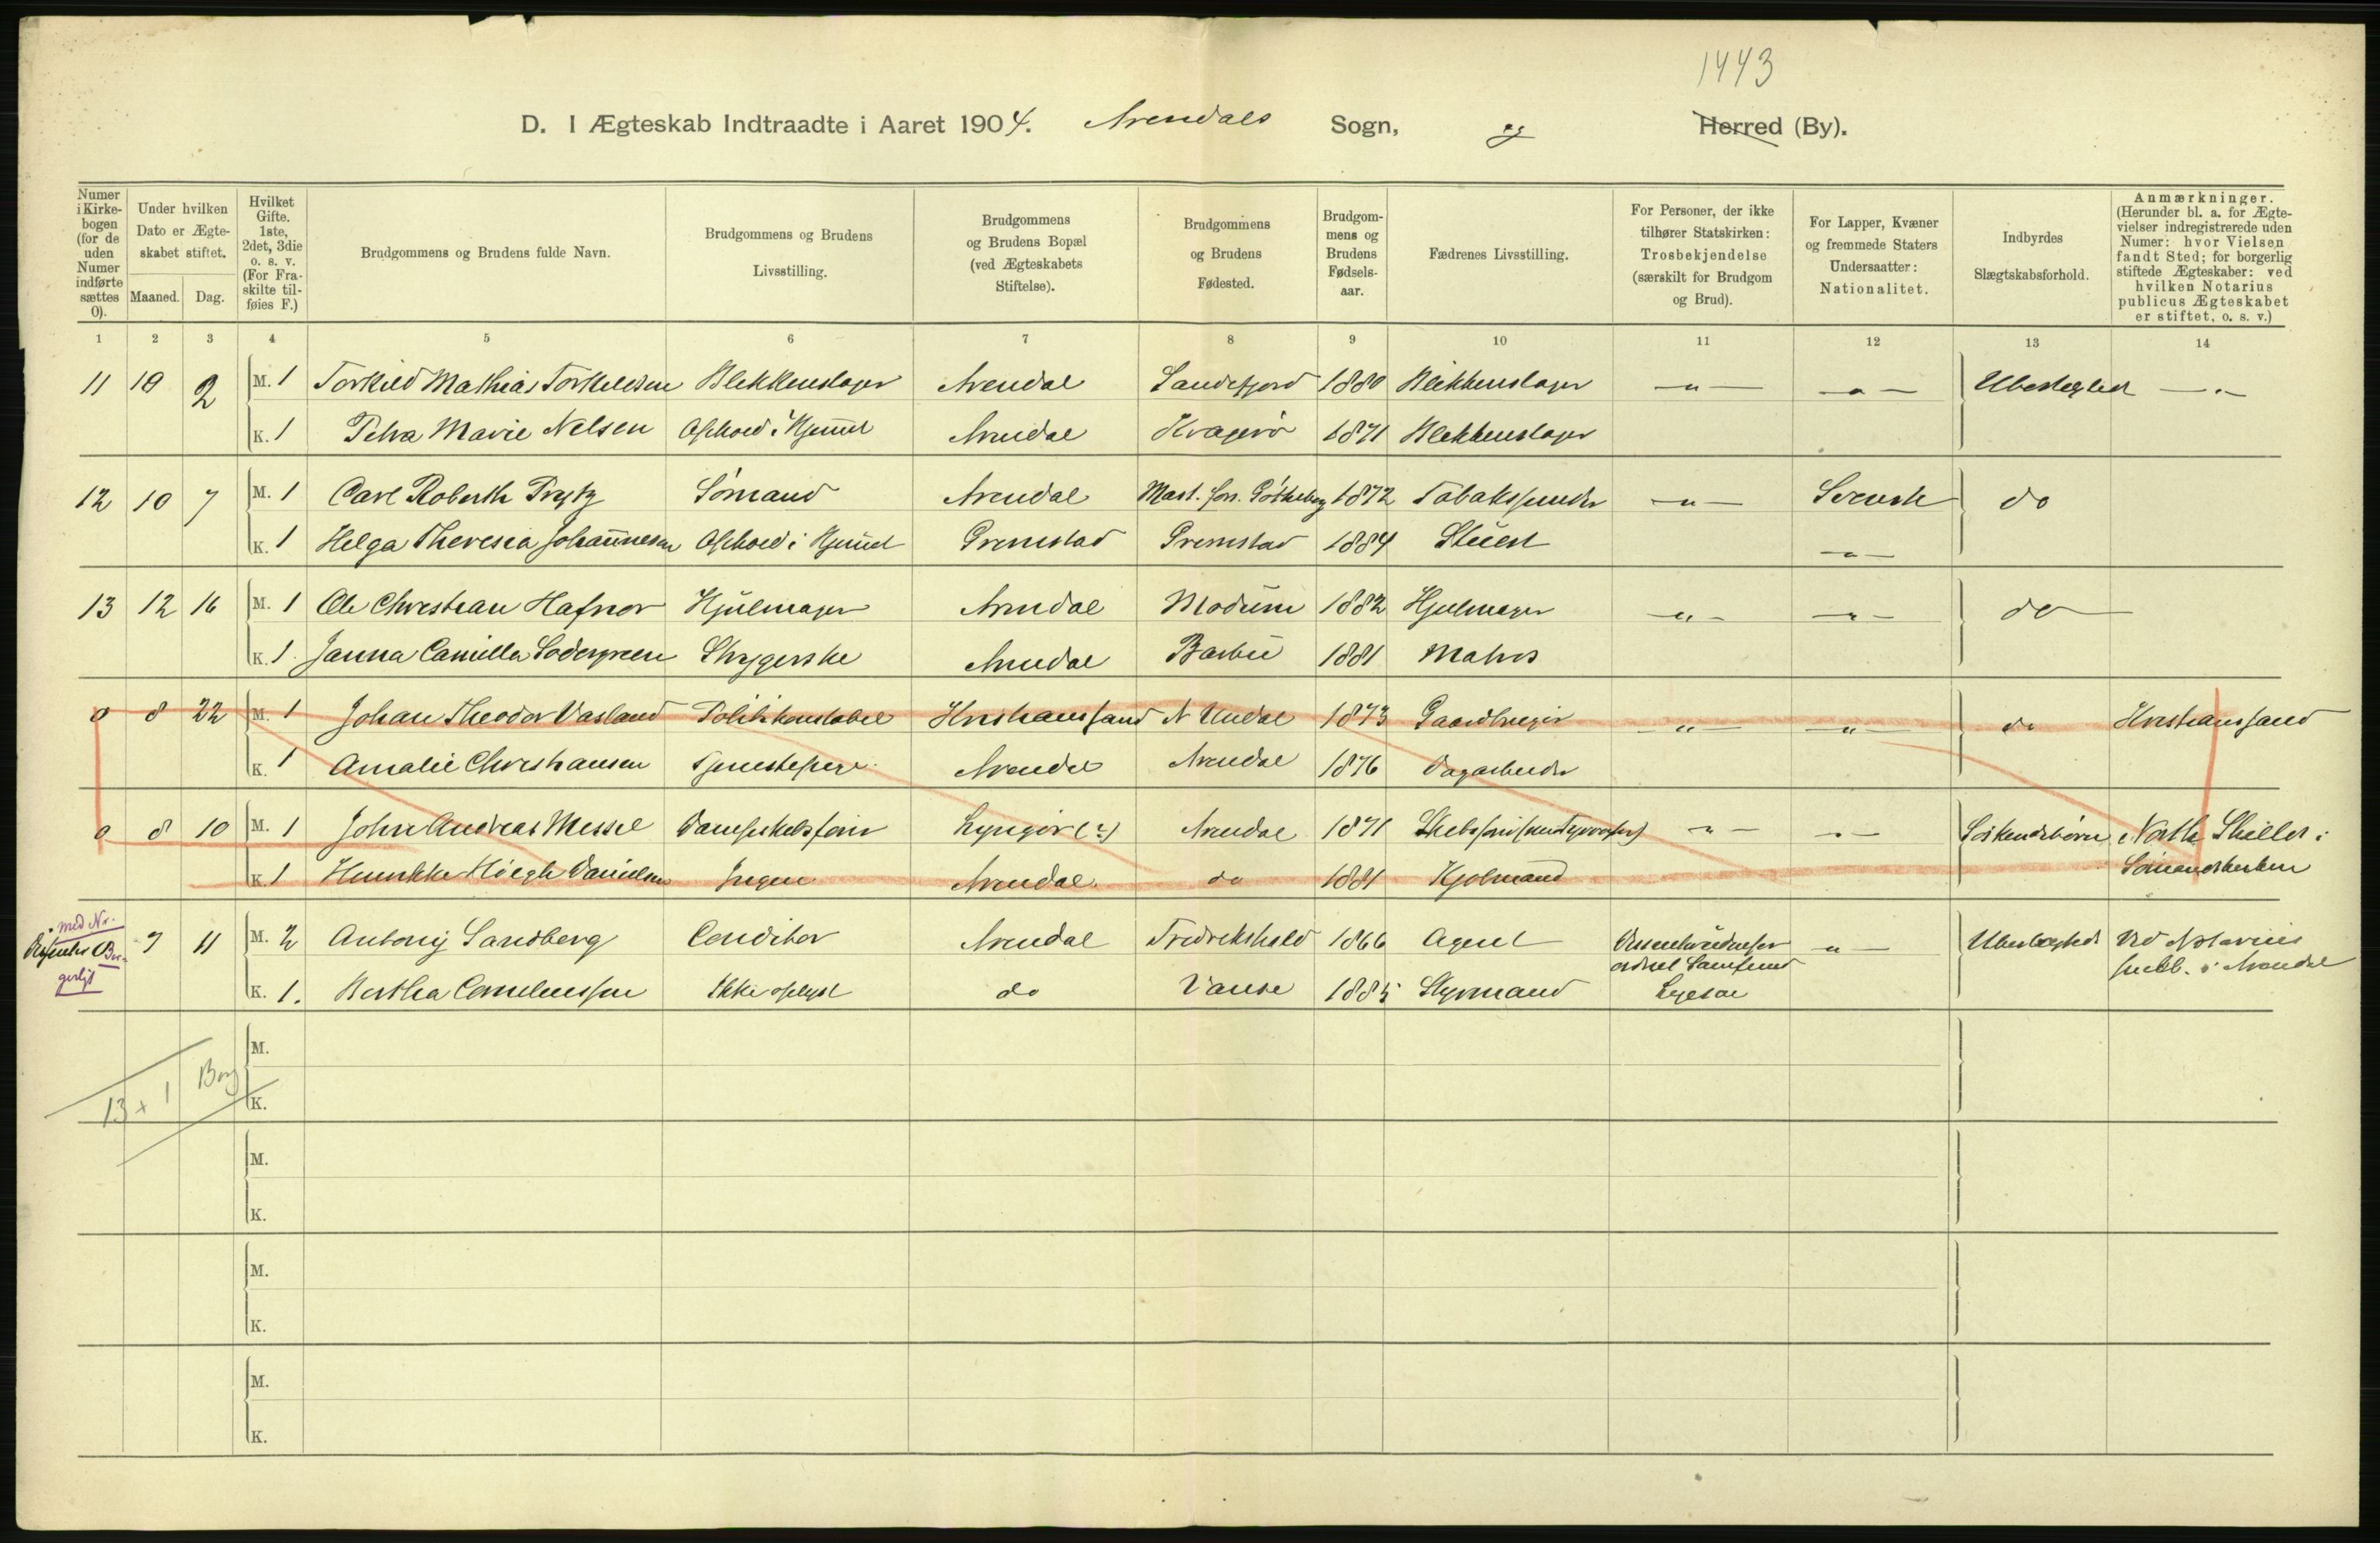 1443
D. I Ægteskab Indtraadte i Aaret 1904. Arendals Sogn, og Herred (By).
Numer i Kirkebogen (for de uden Numer indførte sættes 0).
Under hvilken Dato er Ægteskabet stiftet.
Maaned. Dag.
Hvilket Gifte. 1ste, 2det, 3die o. s. v. (For Fraskilte tilføies F.)
Brudgommens og Brudens fulde Navn.
Brudgommens og Brudens Livsstilling.
Brudgommens og Brudens Bopæl (ved Ægteskabets Stiftelse).
Brudgommens og Brudens Fødested.
Brudgommens og Brudens Fødselsaar.
Fædrenes Livsstilling.
For Personer, der ikke tilhører Statskirken: Trosbekjendelse (særskilt for Brudgom og Brud).
For Lapper, Kvæner og fremmede Staters Undersaatter: Nationalitet.
Indbyrdes Slægtskabsforhold.
Anmærkninger. (Herunder bl. a. for Ægtevielser indregistrerede uden Numer: hvor Vielsen fandt Sted; for borgerlig stiftede Ægteskaber: ved hvilken Notarius publicus Ægteskabet er stiftet, o. s. v.)
1 2 3 4 5 6 7 8 9 10 11 12 13 14
11 10 2 M. 1 Torkild Mathias Torkildsen Blekkenslager Arendal Sandefjord 1880 Blekkenslager — " — — " — Ubeslegted — " —
K. 1 Petra Marie Nelsen Ophold i Hjemmet Arendal Kragerø 1871 Blekkenslager
12 10 7 M. 1 Carl Roberth Trytz Sømand Arendal Mast. fors. Gøtheborg 1872 Tobakspinder — " — Svensk do
K. 1 Helga Theresia Johannesen Ophold i Hjemmet Gremstad Gremstad 1884 Stuert — " —
13 12 16 M. 1 Ole Christian Hafnor Hjulmager Arendal Modum 1882 Hjulmager — " — — " — do
K. 1 Janna Camilla Sodergreen Strygerske Arendal Barbu 1881 Matros
0 8 22 M. 1 Johan Theodor Vasland Politikonstabel Kristianssand N Undal 1873 Gaardbruger — " — — " — do Kristianssand
K. 1 Amalie Christiansen Tjenestepige Arendal Arendal 1876 Dagarbeider
0 8 10 M. 1 John Andreas Messel Dampskibsfører Lyngør (?) Arendal 1871 — " — — " — Søskendebørn North Shields i
K. 1 Henrikke Høegh Danielsen Ingen Arendal. do 1881 Kjøbmand Sømandskirken
med No. Borgerligt 7 11 M. 2 Antonij Sandberg Conditor Arendal Fredrikshald 1866 Agent — " — Ubeslegted Ved Notarius
publ. i Arendal
K. 1. Bertha Corneliussen Ikke oplyst do Vanse 1885 Styrmand
M.
K.
13 + 1 Borg
M.
K.
M.
K.
M.
K.